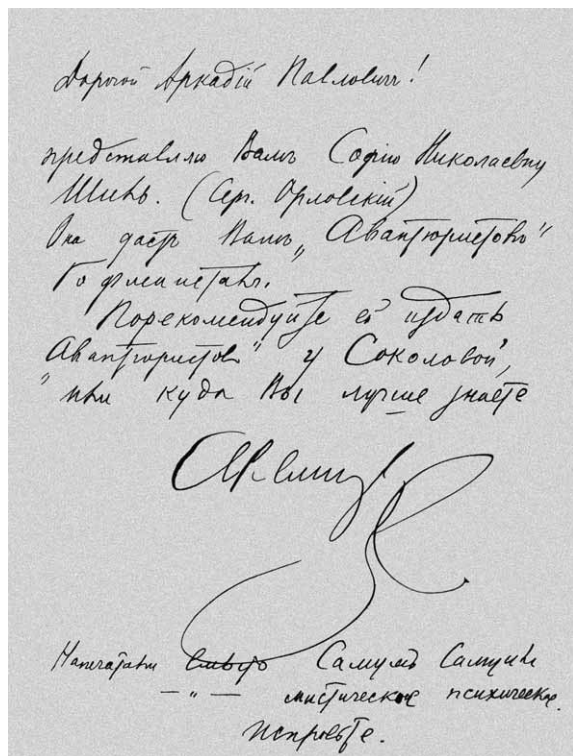 Дорогой Аркадій Павловичъ!
представляю Вамъ Софію Николаевну
Шиль. (Серг. Орловскій)
Она дастъ Вамъ „Авантюристовъ"
Гофмансталя.
Порекомендуйте ей издать
„Авантюристовъ" у Соколовой,
или куда Вы лучше знаете
АРемизов
Напечатали Самуилъ
—„— мистическое психическое.
Исправьте.